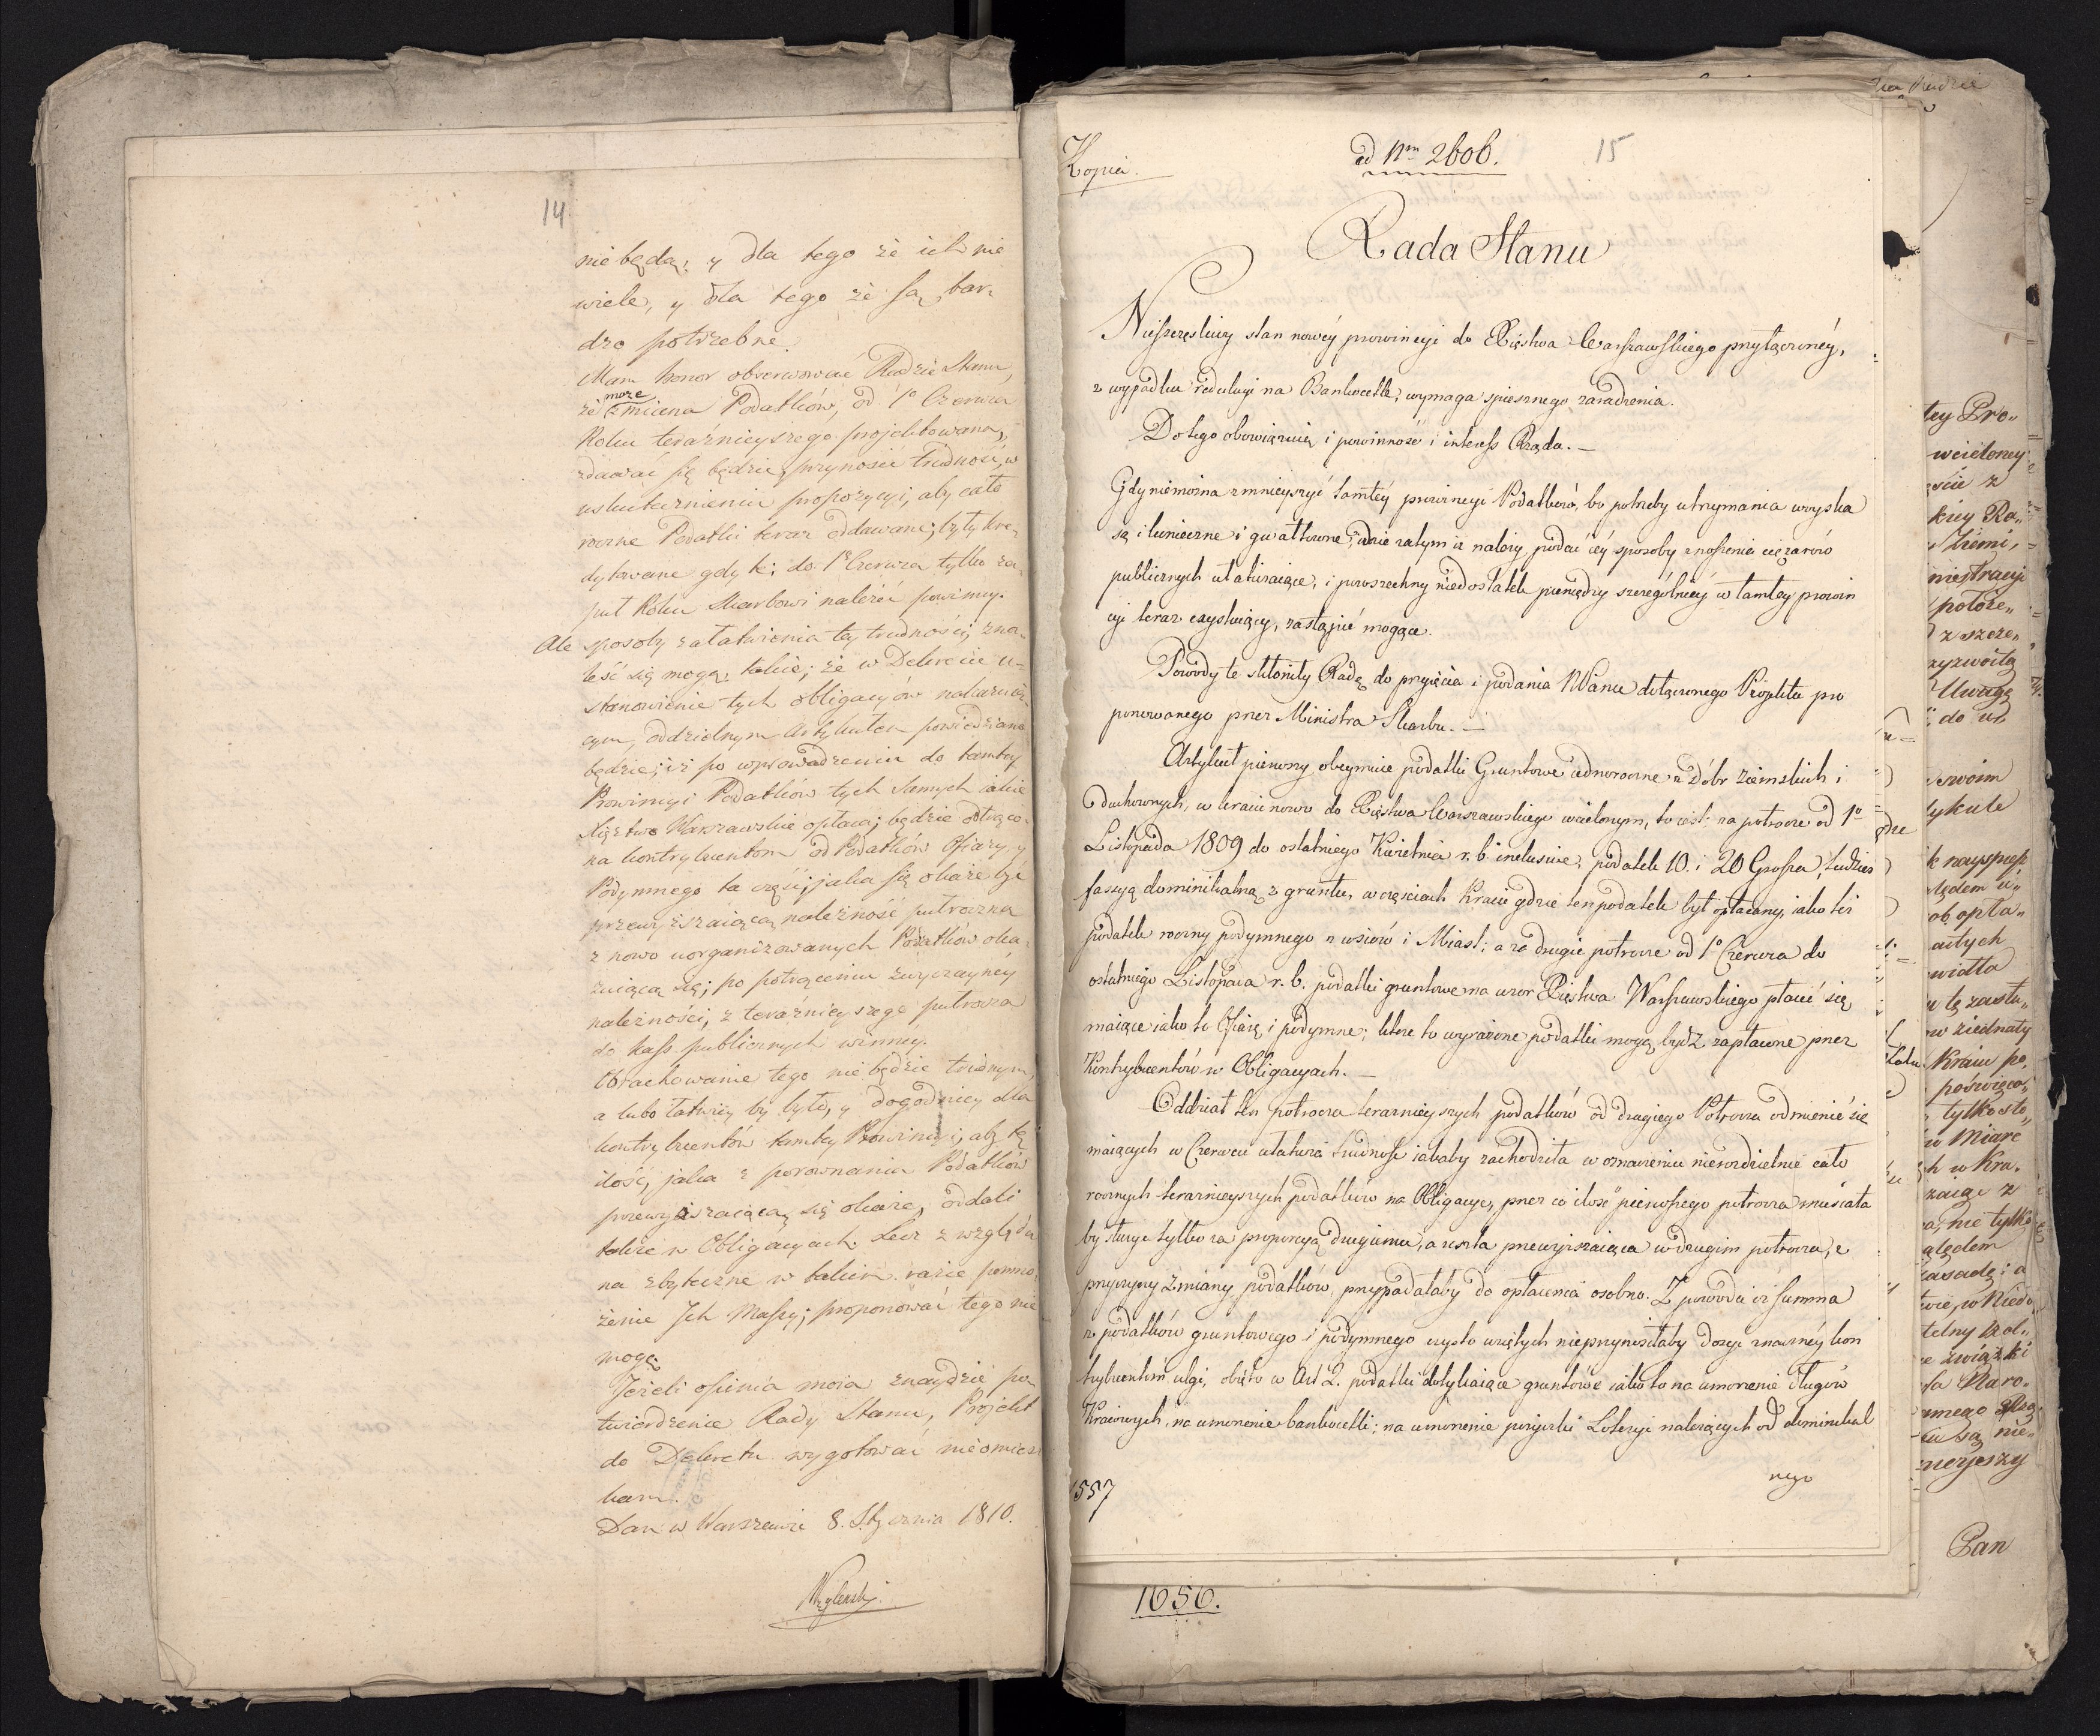 14
nie będą; y dla tego że ich nie
wiele, y dla tego że są bar-
dzo potrzebne.
Mam honor obserwować Radzie Stanu,
że może zmiana Podatków, od 1o Czerwca
Roku teraźnieyszego projektowana,
zdawać się będzie przynosić trudność, w
uskutecznieniu propozycyi, aby cało
roczne Podatki teraz oddawane, były kre-
dytowane gdy te; do 1o Czerwca tylko za
puł Roku Skarbowi należeć powinny.
Ale sposoby załatwienia tey trudności, zna-
leść się mogą takie; że w Dekrecie u-
stanowienie tych obligacyów
cym, oddzielnym Artykułem powiedziano
będzie; iż po wprowadzeniu do tamtey
Prowincyi Podatków tych samych jakie
Xięztwo Warszawskie opłaca; będzie odtrąco-
na kontrybuentom od Podatków Ofiary y
Podymnego ta część, jaka się okaże być
przewyższaiącą należność pułroczna
z nowo uorganizowanych Podatków oka-
zuiącą się; po potrąceniu zwyczayney
należności, z teraźnieyszego pułrocza
do kass publicznych winney.
Obrachowanie tego nie będzie trudnym,
a lubo łatwiey by było, y dogodniey dla
kontrybuentów tamtey Prowincyi, aby tę
ilość, jaka z porownania Podatków
przewyższaiącą się okaże, oddali
także w Obligacyach. Lecz z względu
na zbyteczne w takim razie pomno-
żenie Ich Massy; proponować tego nie
mogę.
Jeżeli opinia moia znaydzie po-
twierdzenie Rady Stanu, Projekt
do Dekretu wygotować nieomiesz
kam.
Dan w Warszawie 8. Stycznia 1810.
Węgleński
Kopia.
ad Nrm 2606.
15
Rada Stanu
Nieszczęśliwy stan nowéy prowincyi do Xięstwa Warszawskiego przyłączonéy,
z wypadku redukcyi na Bankocetle, wymaga spiesznego zaradzenia.
Do tego obowiązuią i powinność i interess Rządu. —
Gdy niemożna zmnieyszyć tamtéy prowincyi Podatków, bo potrzeby utrzymania woyska
są i konieczne i gwałtowne; idzie zatym iż należy podać iéy sposoby znoszenia ciężarów
publicznych ułatwiaiące, i powszechny niedostatek pieniędzy szczególniéy w tamtey prowin
cyi teraz exystuiący, zastąpić mogące.
Powody te skłoniły Radę do przyięcia i podania WPanu dołączonego Proiektu pro
ponowanego przez Ministra Skarbu. —
Artykuł pierwszy obeymuie podatki Gruntowe iednoroczne z Dóbr ziemskich i
duchownych, w kraiu nowo do Xięstwa Warszawskiego wcielonym, to iest: za potrocze od 1o
Listopada 1809 do ostatniego Kwietnia r. b. inclusive; podatek 10. i 20 Grosza, tudzież
fassyą dominikalną z gruntu, w częściach Kraiu gdzie ten podatek był opłacany, iako też
podatek roczny podymnego z wsiów i Miast; a za drugie potrocze od 1o Czerwca do
ostatniego Listopada r. b. podatki gruntowe na wzor Xięstwa Warszawskiego płacić się
maiące iako to Ofiarę i podymne; które to wyrażone podatki mogą bydź zapłacone przez
Kontrybuentów w Obligacyach. —
Oddział ten potrocza teraznieyszych podatków od drugiego Potrocza odmienić się
maiących w Czerwcu ułatwia trudność iakaby zachodziła w oznaczeniu nierozdzielnie cało
rocznych teraznieyszych podatków na Obligacye, przez co ilość pierwszego potrocza musiała
by służyć tylko za proporcyą drugiemu, a reszta przewyższaiąca w drugim potroczu, z
przyczyny zmiany podatków, przypadałaby do opłacenia osobno. Z powodu iż summa
z podatków gruntowego i podymnego czysto wziętych nieprzyniosłaby dosyć znacznéy kon
trybuentom ulgi, obięto w Art 2. podatki dotykaiące gruntów iako to na umorzenie długów
Kraiowych, na umorzenie bankocetli; na umorzenie pożyczki Loteryi należących od dominikal
nego
557
1656.
tey Pro-
wcieloney
kiey Ra-
Ziemi,
nistracyi
położe-
z szcze-
zyzwoitą
Uwagę
do u-
swoim
tykule
k nayspiesz
lędem u-
ob opła-
aitych
widła
u tę zastu-
ow ziednały
Kraiu po-
poświęco-
tylko sto-
w Miarę
h w Kra-
a, nie tylko
ględem
zasadę; a
telny Pol-
związki
Naro-
są nie-
nieyszy
Pan